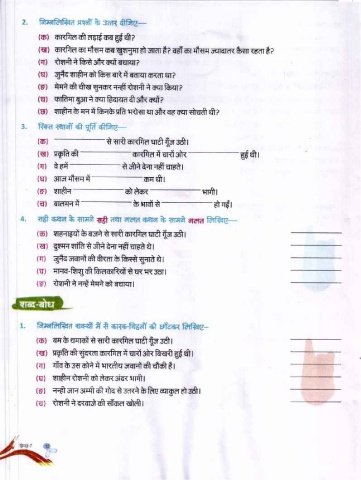 2. निम्नलिखित प्रश्नों के उत्तर दीजिए—
(क) कारगिल की लड़ाई कब हुई थी?
(ख) कारगिल का मौसम कब खुशनुमा हो जाता है? वहाँ का मौसम ज़्यादातर कैसा रहता है?
(ग) रोशनी ने किसे और क्यों बचाया?
(घ) जुनैद शाहीन को किस बारे में बताया करता था?
(ङ) मेमने की चीख सुनकर नन्हीं रोशनी ने क्या किया?
(च) फातिमा बुआ ने क्या हिदायत दी और क्यों?
(छ) शाहीन के मन में किनके प्रति भरोसा था और वह क्या सोचती थी?
3. रिक्त स्थानों की पूर्ति कीजिए—
(क) से सारी कारगिल घाटी गूँज उठी।
(ख) प्रकृति की कारगिल में चारों ओर हुई थी।
(ग) वे हमें से जीने देना नहीं चाहते।
(घ) आज मौसम में कम थी।
(ङ) शाहीन को लेकर भागी।
(च) बालमन में के भावों से हो गईं।
4. सही कथन के सामने सही तथा गलत कथन के सामने गलत लिखिए—
(क) शहनाइयों के बजने से सारी कारगिल घाटी गूँज उठी।
(ख) दुश्मन शांति से जीने देना नहीं चाहते थे।
(ग) जुनैद जवानों की वीरता के किस्से सुनाते थे।
(घ) मानव-शिशु की किलकारियों से घर भर उठा।
(ङ) रोशनी ने नन्हे मेमने को बचाया।
शब्द-बोध
1. निम्नलिखित वाक्यों में से कारक-चिह्नों को छाँटकर लिखिए—
(क) बम के धमाकों से सारी कारगिल घाटी गूँज उठी।
(ख) प्रकृति की सुंदरता कारगिल में चारों ओर बिखरी हुई थी।
(ग) गाँव के उस कोने में भारतीय जवानों की चौकी है।
(घ) शाहीन रोशनी को लेकर अंदर भागी।
(ङ) नन्ही जान अम्मी की गोद से उतरने के लिए व्याकुल हो उठी।
(च) रोशनी ने दरवाजे की साँकल खोली।